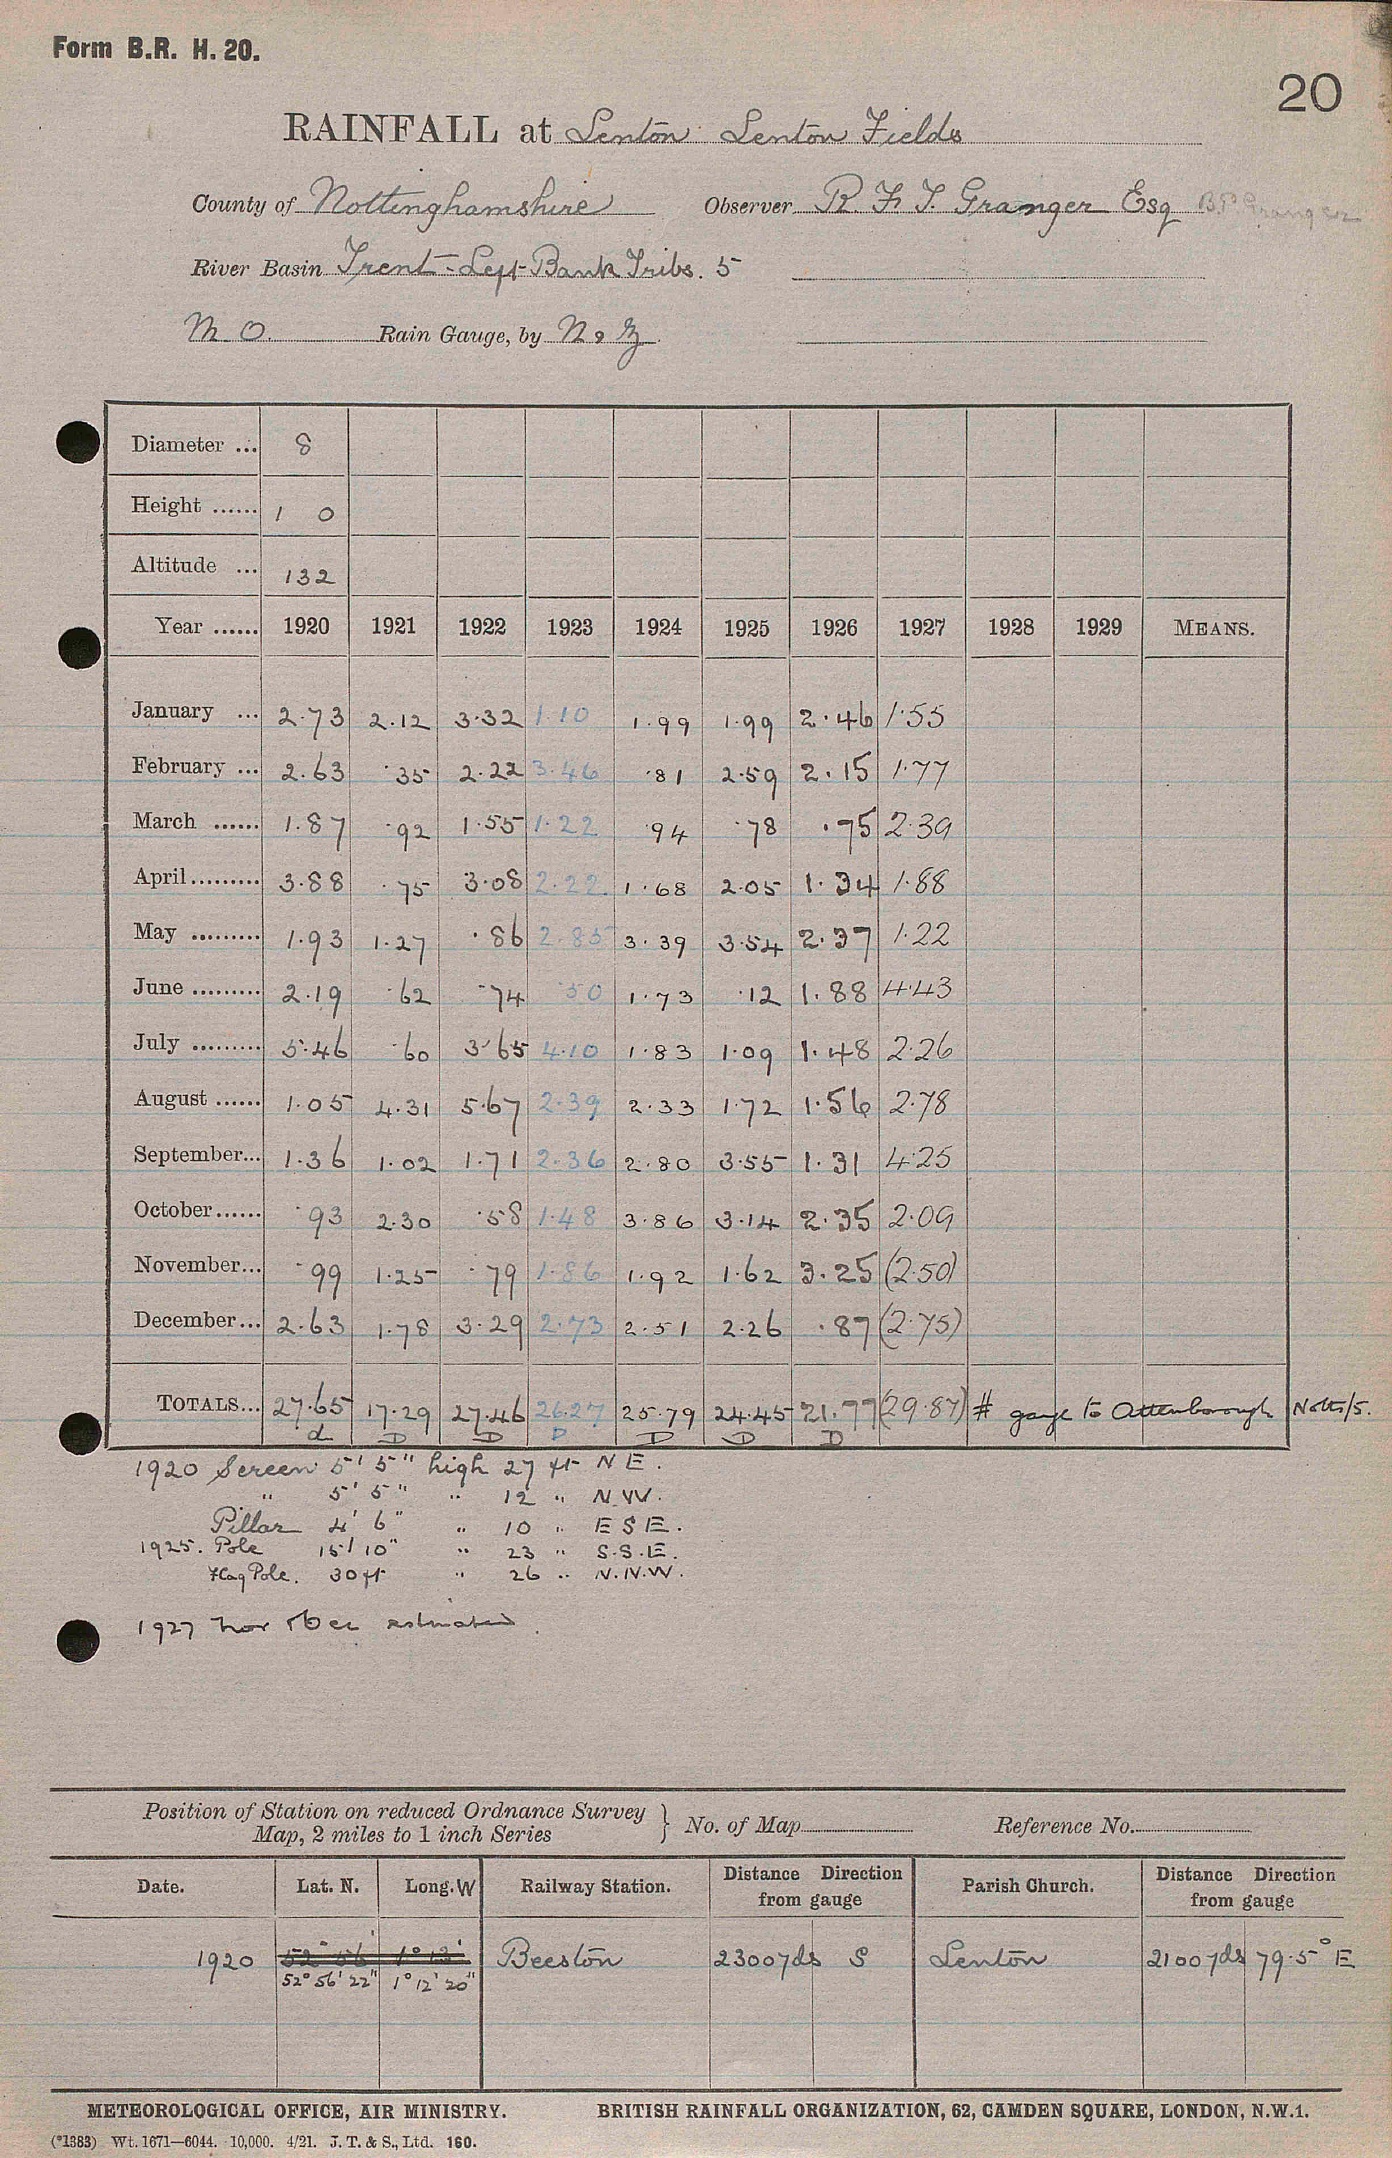 Form B.R. H. 20.
20
RAINFALL at Lenton: Lenton Fields
County of Nottinghamshire Observer R. F. T. Granger Esq B.P. Granger
River Basin Trent - Left Bank Tribs. 5
M. O. Rain Gauge, by N & Z
Diameter ... 8
Height ...... 1 0
Altitude ... 132
Year ...... 1920 1921 1922 1923 1924 1925 1926 1927 1928 1929 MEANS.
January ... 2.73 2.12 3.32 1.10 1.99 1.99 2.46 1.55
February ... 2.63 .35 2.22 3.46 .81 2.59 2.15 1.77
March ...... 1.87 .92 1.55 1.22 .94 .78 .75 2.39
April ......... 3.88 .75 3.08 2.22 1.68 2.05 1.34 1.88
May ......... 1.93 1.27 .86 2.85 3.39 3.54 2.37 1.22
June ......... 2.19 .62 .74 .50 1.73 .12 1.88 4.43
July ......... 5.46 .60 3.65 4.10 1.83 1.09 1.48 2.26
August ...... 1.05 4.31 5.67 2.39 2.33 1.72 1.56 2.78
September... 1.36 1.02 1.71 2.36 2.80 3.55 1.31 4.25
October...... .93 2.30 .58 1.48 3.86 3.14 2.35 2.09
November... .99 1.25 .79 1.86 1.92 1.62 3.25 (2.50)
December... 2.63 1.78 3.29 2.73 2.51 2.26 .87 (2.75)
TOTALS... 27.65 17.29 27.46 26.27 25.79 24.45 21.77 (29.87) # gauge to Attenborough Notts/5.
d D D D D D D
1920 Screen 5' 5" high 27 ft N E.
" 5' 5" " 12 " N.W.
Pillar 4' 6" " 10 " E S E.
1925. Pole 15' 10" " 23 " S.S.E.
Flag Pole. 30 ft " 26 " N.N.W.
1927 Nov & Dec estimated.
Position of Station on reduced Ordnance Survey Map, 2 miles to 1 inch Series } No. of Map Reference No.
Date. Lat. N. Long. W Railway Station. Distance Direction from gauge Parish Church. Distance Direction from gauge
1920 52° 56' 1° 13' Beeston 2300 yds S Lenton 2100 yds 79.5° E
52° 56' 22" 1° 12' 20"
METEOROLOGICAL OFFICE, AIR MINISTRY. BRITISH RAINFALL ORGANIZATION, 62, CAMDEN SQUARE, LONDON, N.W.1.
(*1383) Wt. 1671—6044. 10,000. 4/21. J. T. & S., Ltd. 160.